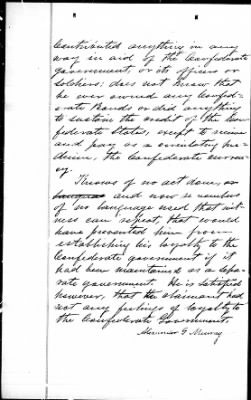 Contributed anything in any
way in aid of the Confederate
government, or its officers or
soldiers, does not know that
he ever owned any Confed-
erate Bonds or did anything
to sustain the credit of the Con-
federate States, except to receive
and pay as a circulating me-
dium, the Confederate curren-
cy.
Knows of no act done, or
language and now remembers
of no language used that wit-
ness can repeat, that would
have prevented him from
establishing his loyalty to the
Confederate government if it
had been maintained as a sepa-
rate government. He is satisfied
however, that the claimant had
not any feelings of loyalty to
the Confederate Government.
G. Murray